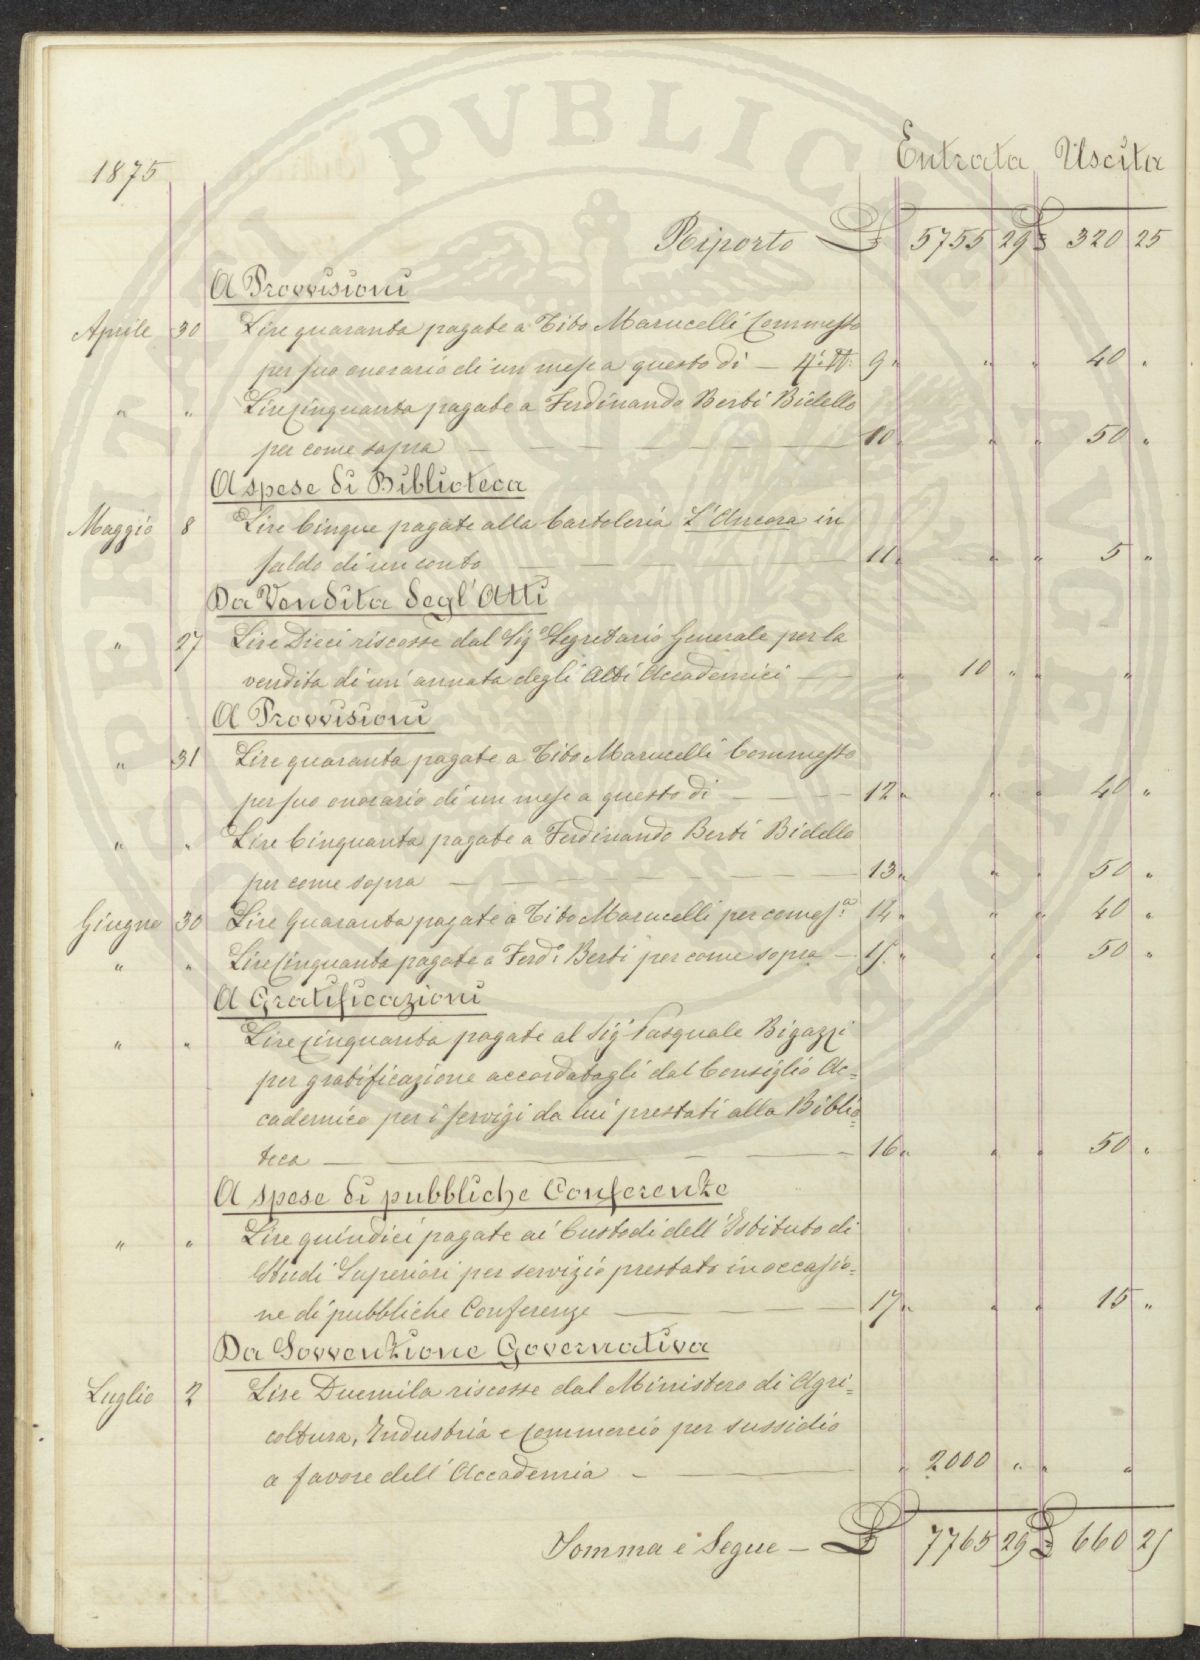 1875
Entrata Uscita
Riporto £ 5755 29 £ 320 25
A Provvisioni
Aprile 30 Lire quaranta pagate a Tito Marucelli Commesso
per suo onorario di un mese a questo dì — 9 " " " 40 "
" " Lire Cinquanta pagate a Ferdinando Berti Bidello
per come sopra — 10 " " " 50 "
A spese di Biblioteca
Maggio 8 Lire Cinque pagate alla Cartoleria L'Ancora in
saldo di un conto — 11 " " " 5 "
Da Vendita degl'Atti
" 27 Lire Dieci riscosse dal Sigr Segretario Generale per la
vendita di un'annata degli Atti Accademici — " 10 " " "
A Provvisioni
" 31 Lire quaranta pagate a Tito Marucelli Commesso
per suo onorario di un mese a questo dì — 12 " " " 40 "
" " Lire Cinquanta pagate a Ferdinando Berti Bidello
per come sopra — 13 " " " 50 "
Giugno 30 Lire Quaranta pagate a Tito Marucelli per come s.a 14 " " " 40 "
" " Lire Cinquanta pagate a Ferdo Berti per come sopra — 15 " " " 50 "
A Gratificazioni
" " Lire Cinquanta pagate al Sigr Pasquale Bigazzi
per gratificazione accordatagli dal Consiglio Ac=
cademico per i servigi da lui prestati alla Biblio=
teca — 16 " " " 50 "
A spese di pubbliche Conferenze
" " Lire quindici pagate ai Custodi dell'Istituto di
Studi Superiori per servizio prestato in occasio=
ne di pubbliche Conferenze — 17 " " " 15 "
Da Sovvenzione Governativa
Luglio 2 Lire Duemila riscosse dal Ministero di Agri=
coltura, Industria e Commercio per sussidio
a favore dell'Accademia — " 2000 " " "
Somma e Segue — £ 7765 29 £ 660 25
PVBLICAE